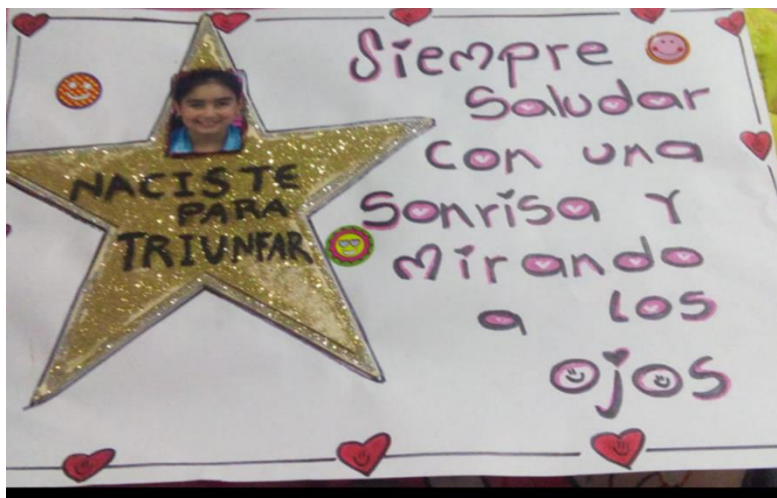 NACISTE
PARA
TRIUNFAR
Siempre
Saludar
con una
Sonrisa y
Mirando
a los
ojos